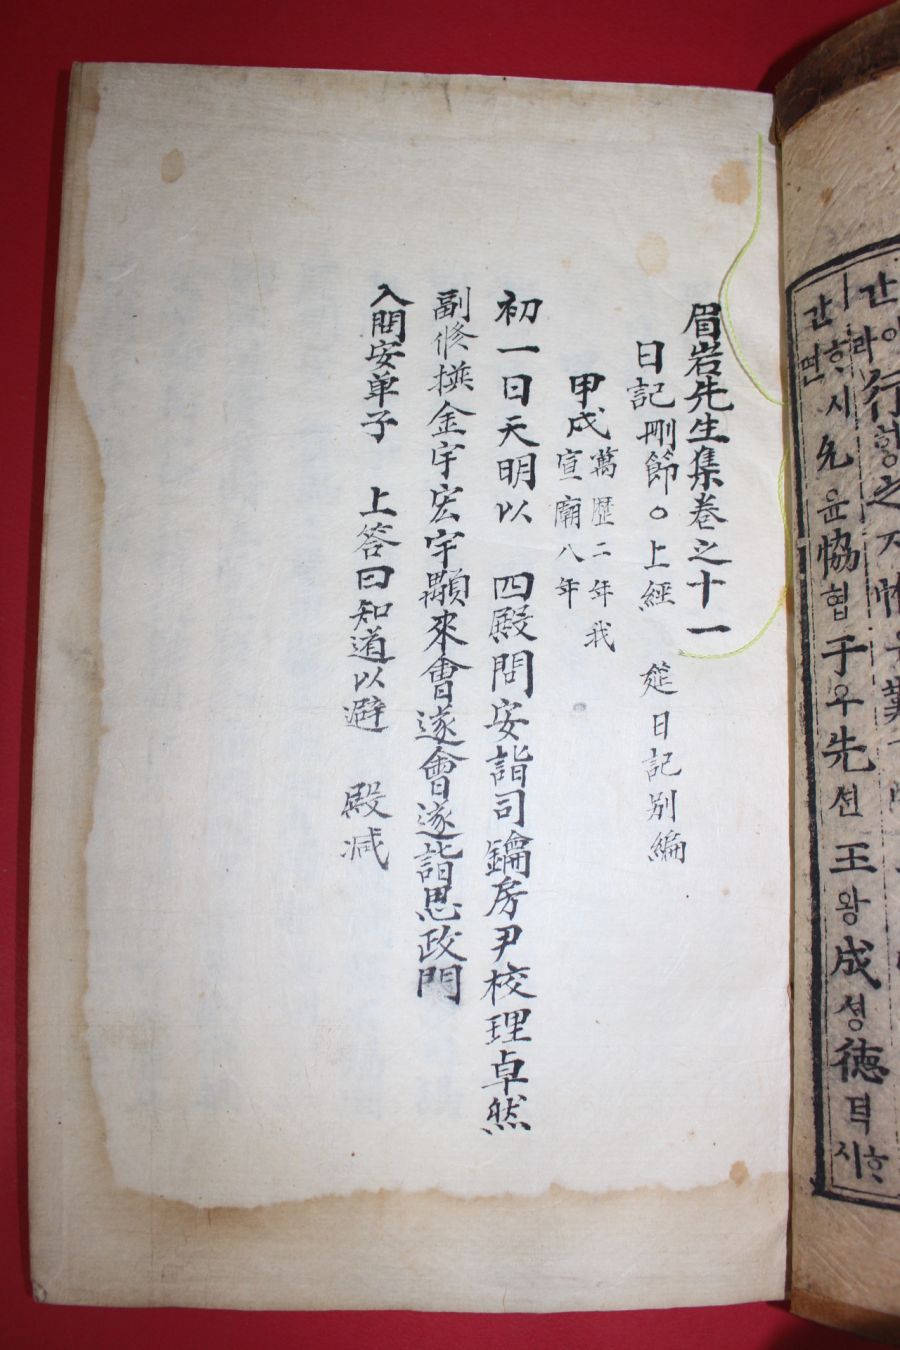 眉岩先生集卷之十一
日記刪節○上經 筵日記別編
甲戌萬歷二年我
宣廟八年
初一日天明以 四殿問安詣司鑰房尹校理卓然
副修撰金宇宏宇顒來會遂會遂詣思政門
入問安单子 上答曰知道以避 殿减
行
간이라
ㅣ흐시
간면
允윤恊협于우先션王왕成셩德덕
시흐